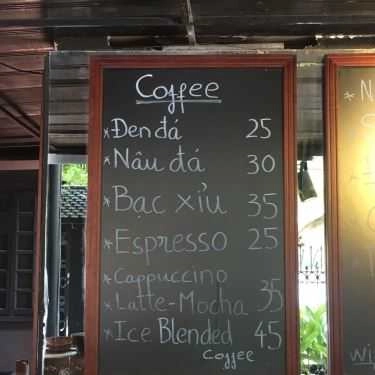 Coffee
*Đen đá 25
*Nâu đá 30
*Bạc xỉu 35
*Espresso 25
*Cappuccino
*Latte-Mocha 35
*Ice Blended 45
Coffee
* N
wi